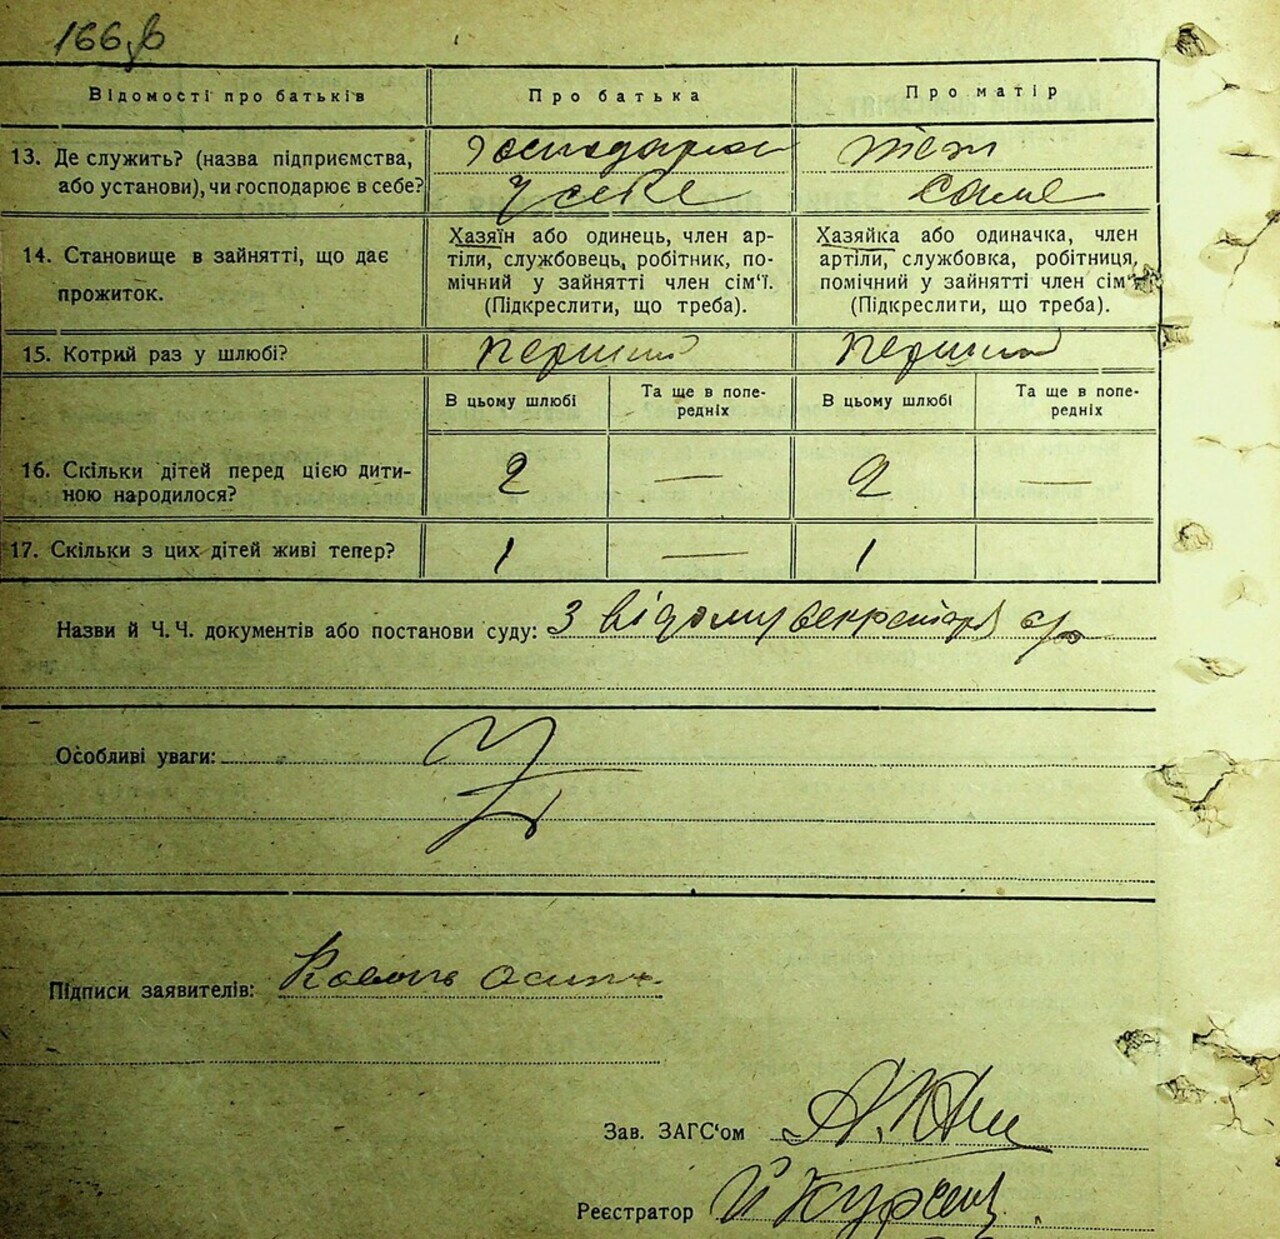 166
Відомості про батьків Про батька Про матір
13. Де служить? (назва підприємства, господарює теж
або установи), чи господарює в себе? у себе саме
14. Становище в зайнятті, що дає
прожиток.
Хазяїн або одинець, член ар-
тіли, службовець, робітник, по-
мічний у зайнятті член сім'ї.
(Підкреслити, що треба).
Хазяйка або одиначка, член
артіли, службовка, робітниця,
помічний у зайнятті член сім'ї
(Підкреслити, що треба).
15. Котрий раз у шлюбі? перший перший
В цьому шлюбі Та ще в попе-
редніх
В цьому шлюбі Та ще в попе-
редніх
16. Скільки дітей перед цією дити-
ною народилося? 2 — 2 —
17. Скільки з цих дітей живі тепер? 1 — 1
Назви й Ч. Ч. документів або постанови суду: З відому секретаря с/р
Особливі уваги:
Підписи заявителів:
Зав. ЗАГС'ом
Реєстратор